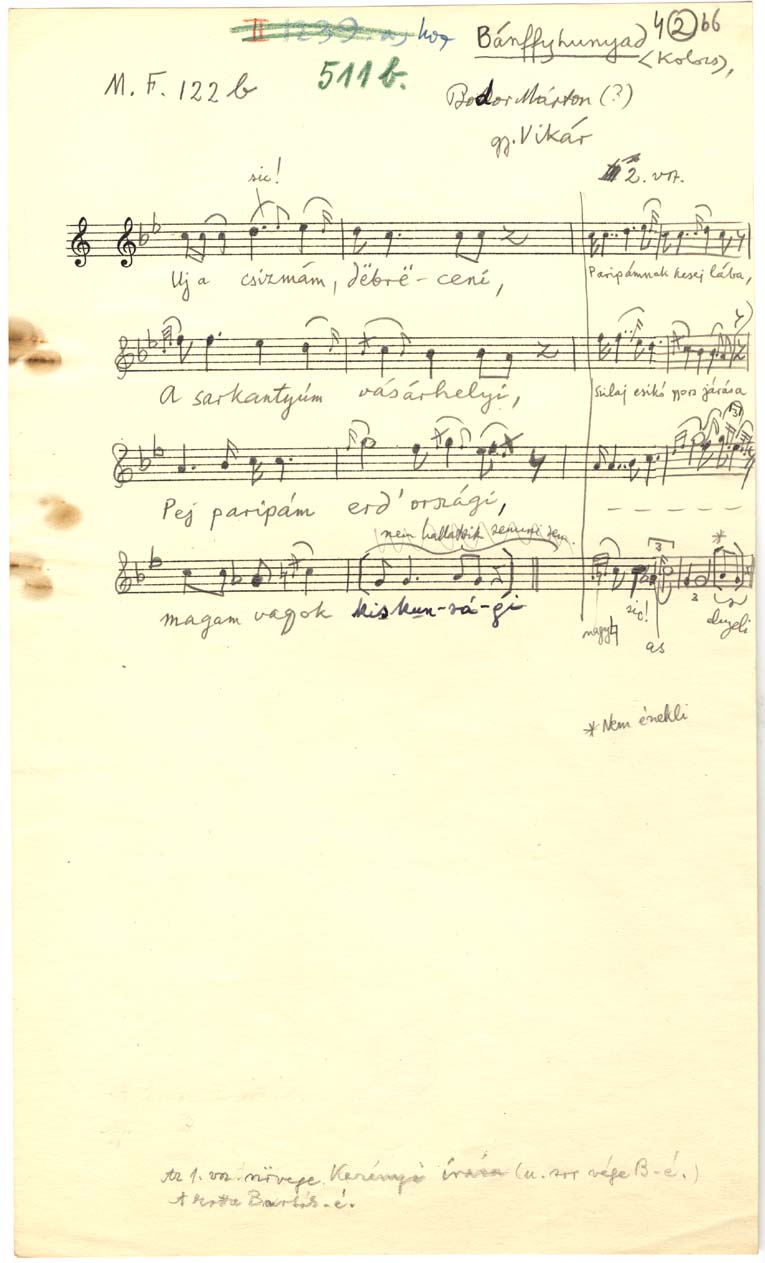 II 1239. a, hoz
4 2 66
Bánffyhunyad
(Kolozs),
M. F. 122 b
511 b.
Bodor Márton (?)
gy. Vikár
sic!
2. vsz.
Uj a csizmám, dëbrë-ceni,
Paripámnak kesej lába,
A sarkantyúm vásárhelyi,
Szilaj csikó gyors járása
Pej paripám erd'országi,
– – – – –
nem hallatszik semmi sem.
magam vagyok kis kun-sá-gi
3
3
*
nagy
sic!
as
* Nem énekli
Az 1. vsz. szövege Kerényi írása (u. sor vége B-é.)
A kotta Bartók-é.